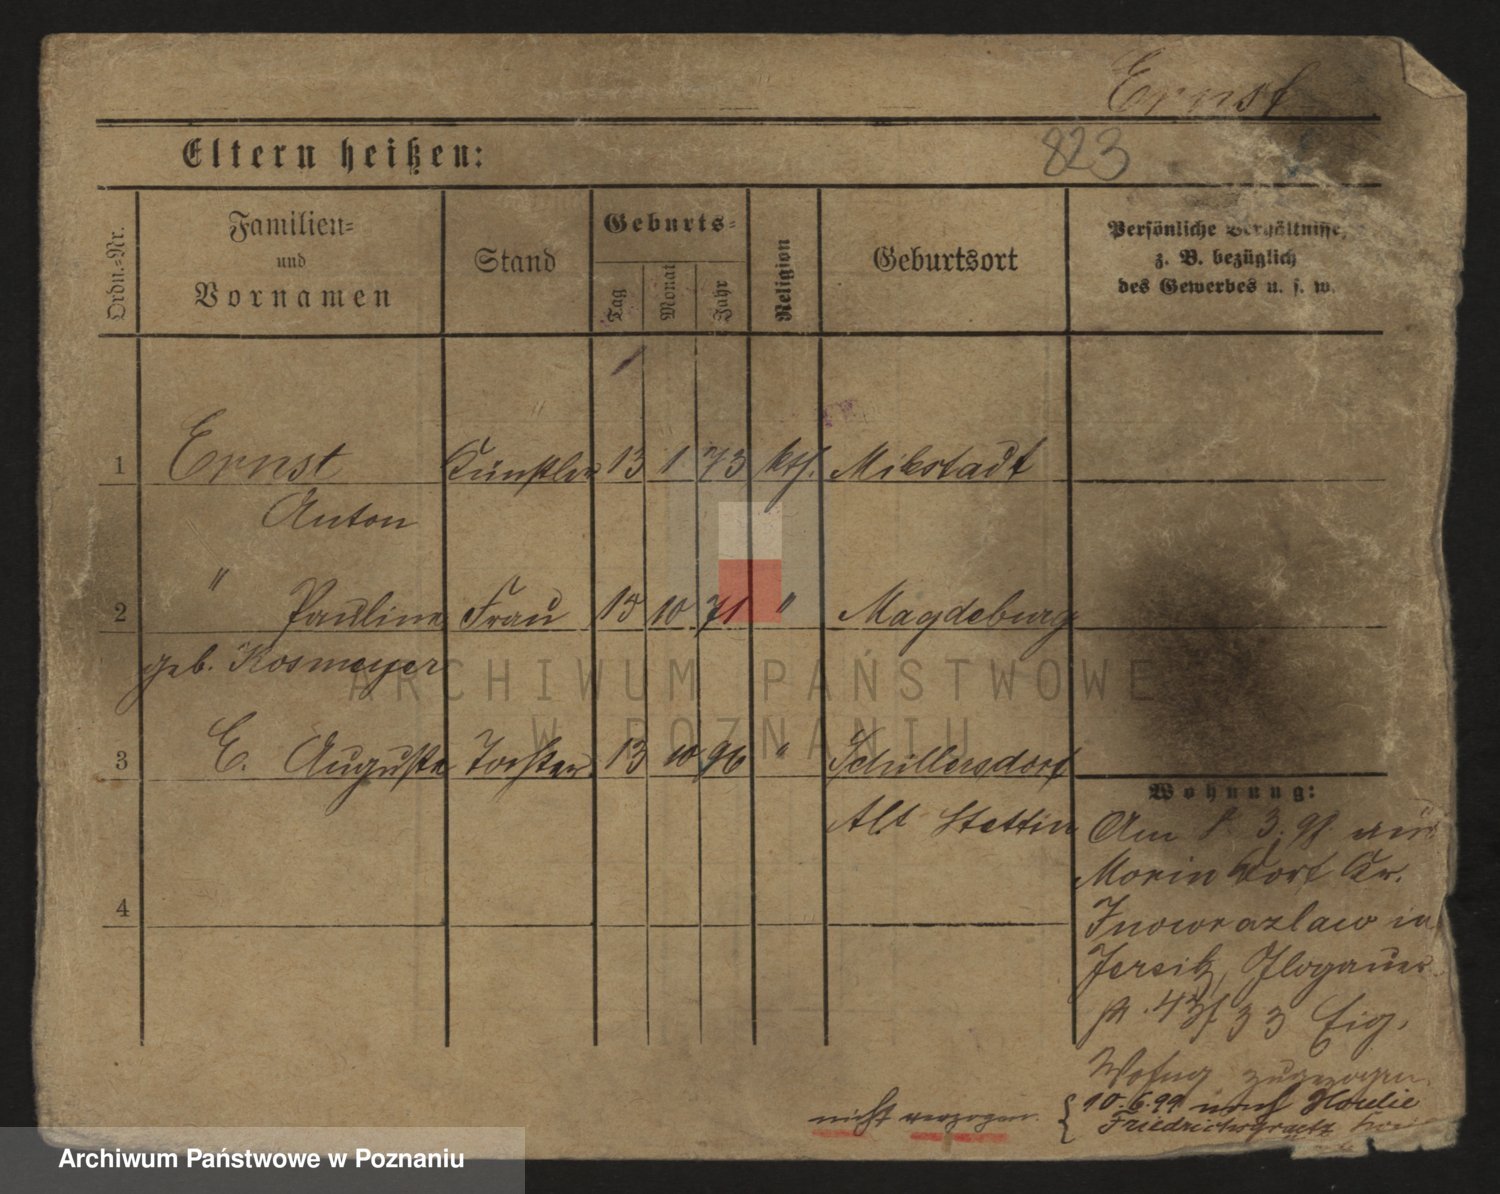 Ernst
Eltern heißen:
823
Ordn.-Nr.
Familien-
und
Vornamen
Stand
Geburts-
Tag
Monat
Jahr
Religion
Geburtsort
Persönliche Verhältnisse,
z. B. bezüglich
des Gewerbes u. s. w.
1 Ernst Künstler 13 1 73 kth. Mikstadt
Anton
2 " Pauline Frau 15 10 71 " Magdeburg
geb. Rosmeyer
3 E. Auguste Tochter 13 10 96 " Schillersdorf
Alt Stettin
4
Wohnung:
Am 8. 3. 98 aus
Morin Dorf Kr.
Inowrazlaw in
Jersitz, Glogauer
st. 33 Eig.
Wohng zugezogen.
10.6.99 nach
Friedrichsgraetz
nicht verzogen.
ARCHIWUM PAŃSTWOWE
W POZNANIU
Archiwum Państwowe w Poznaniu